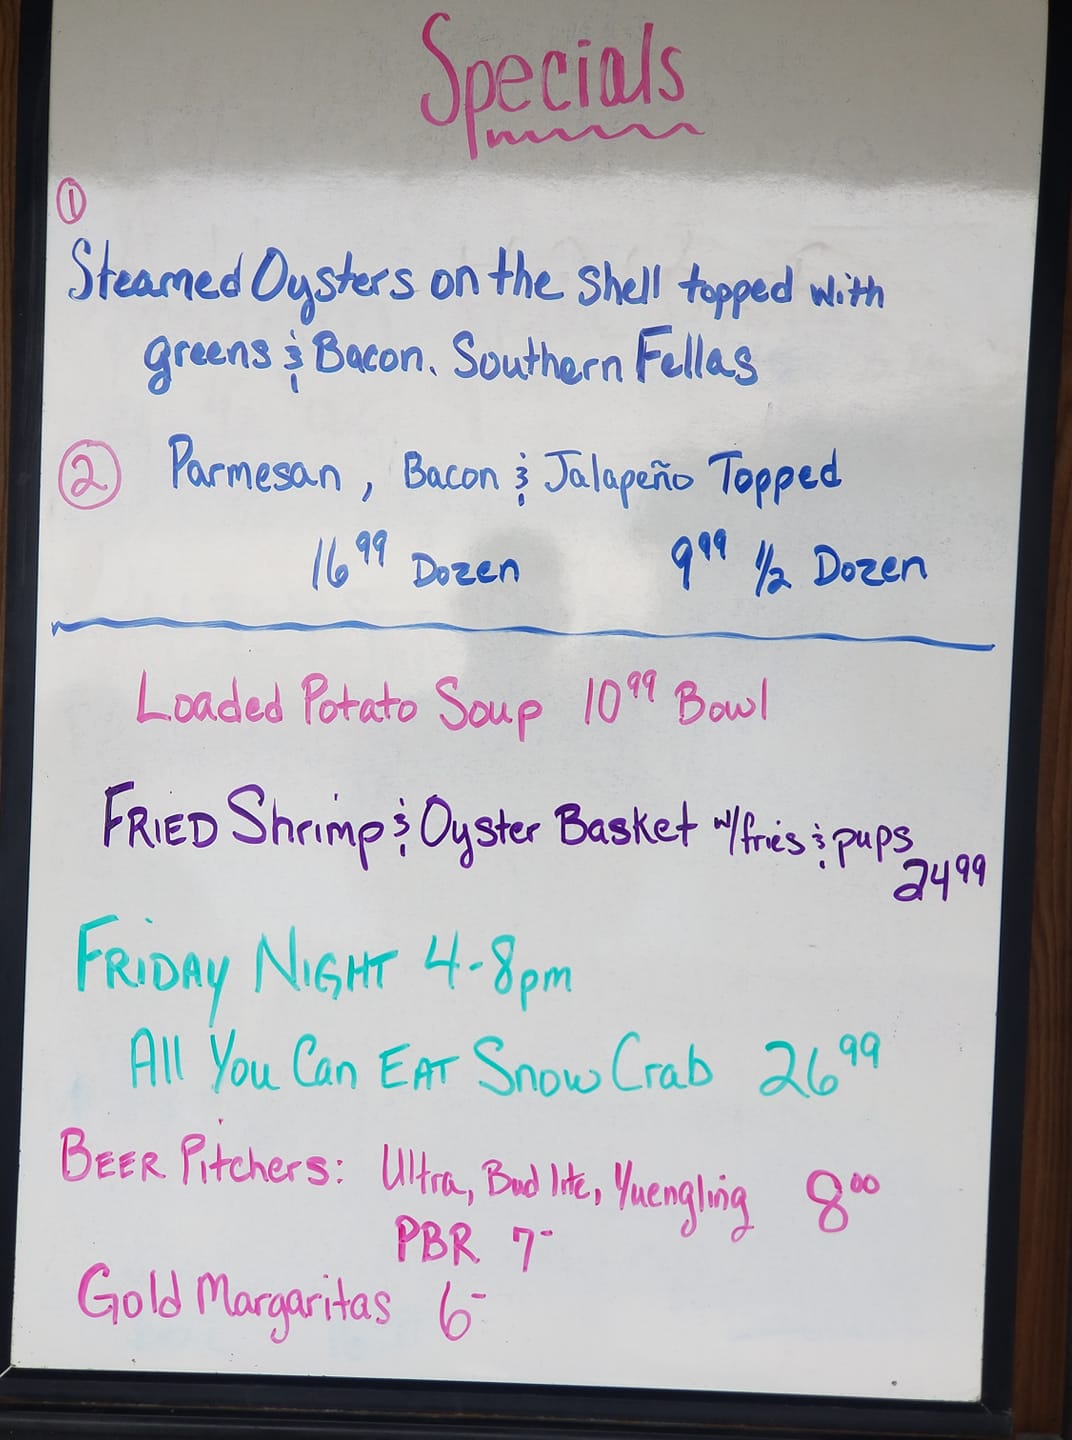 Specials
①
Steamed Oysters on the Shell topped with
greens & Bacon. Southern Fellas
② Parmesan, Bacon & Jalapeño Topped
16.99 Dozen 9.99 1/2 Dozen
Loaded Potato Soup 10.99 Bowl
FRIED Shrimp & Oyster Basket w/fries & pups
24.99
FRIDAY NIGHT 4-8pm
All You Can EAT Snow Crab 26.99
BEER Pitchers: Ultra, Bud lite, Yuengling 8.00
PBR 7-
Gold Margaritas 6-